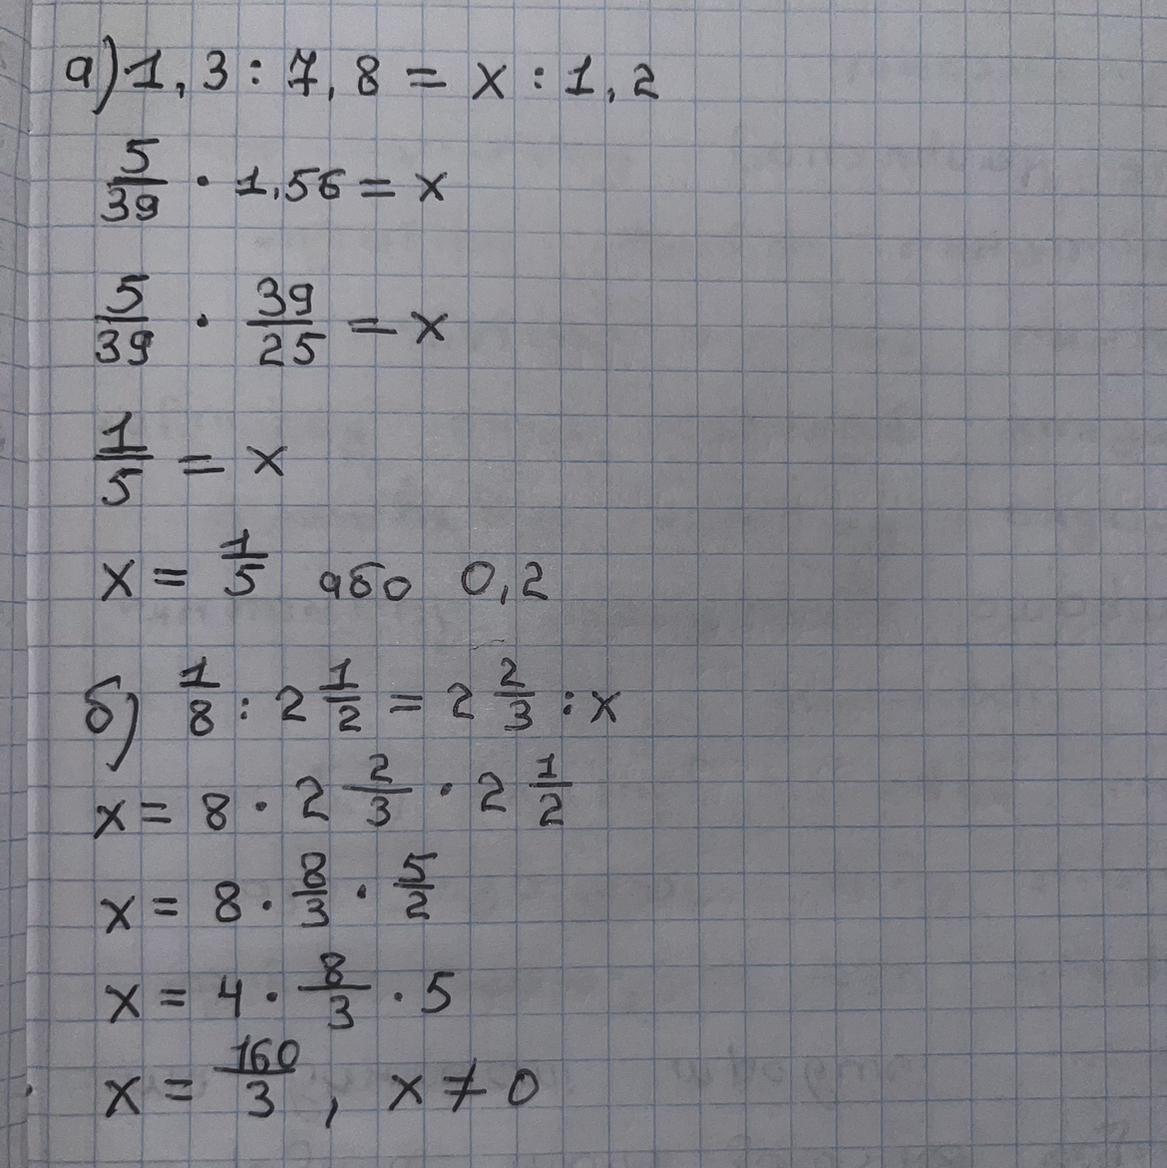 а) 1,3 : 7,8 = x : 1,2
5/39 · 1,56 = x
5/39 · 39/25 = x
1/5 = x
x = 1/5 або 0,2
б) 1/8 : 2 1/2 = 2 2/3 : x
x = 8 · 2 2/3 · 2 1/2
x = 8 · 8/3 · 5/2
x = 4 · 8/3 · 5
x = 160/3, x ≠ 0